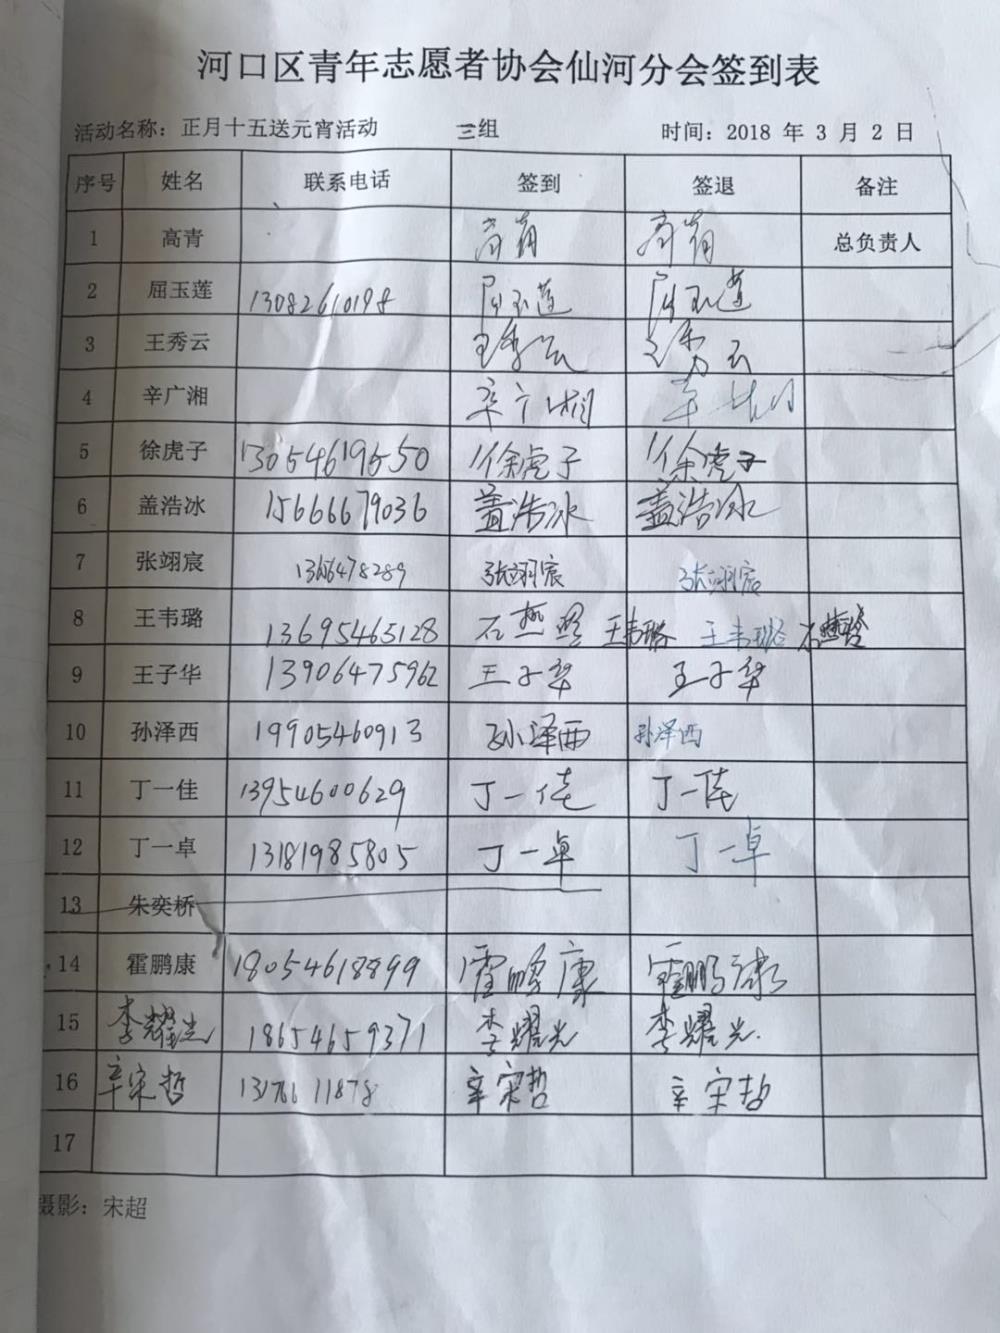 河口区青年志愿者协会仙河分会签到表
活动名称：正月十五送元宵活动 三组 时间：2018 年 3 月 2 日
序号 姓名 联系电话 签到 签退 备注
1 高青 总负责人
2 屈玉莲 13082610198 屈玉莲 屈玉莲
3 王秀云 王秀云
4 辛广湘 辛广湘
5 徐虎子 13054619550 徐虎子 徐虎子
6 盖浩冰 15666679036 盖浩冰 盖浩冰
7 张翊宸 张翊宸 张翊宸
8 王韦璐 13695465128 王韦璐 王韦璐
9 王子华 13906475962 王子华 王子华
10 孙泽西 19905460913 孙泽西 孙泽西
11 丁一佳 13954600629 丁一佳 丁一佳
12 丁一卓 13181985805 丁一卓 丁一卓
13 朱奕桥
14 霍鹏康 18054618899 霍鹏康 霍鹏康
15 李耀光 18654659371 李耀光 李耀光.
16 辛宋哲 辛宋哲 辛宋哲
17
摄影：宋超